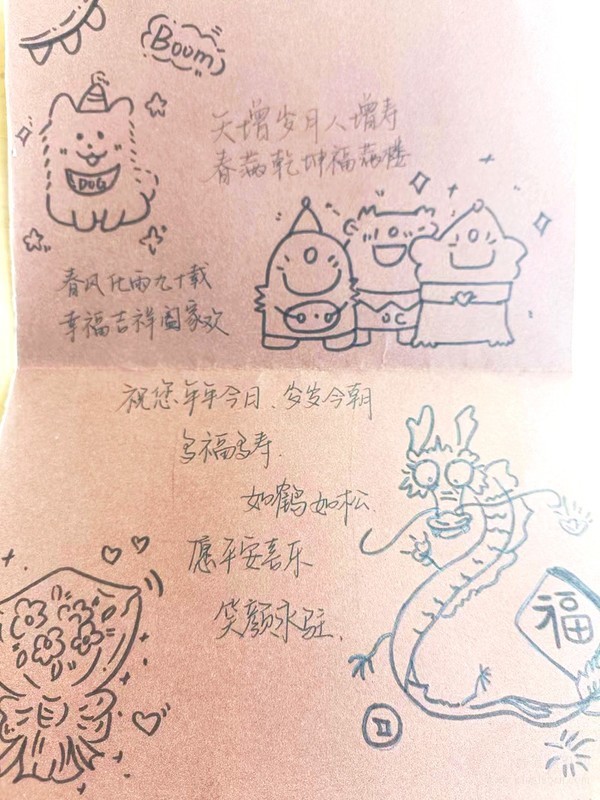 Boom
天增岁月人增寿
春满乾坤福满楼
DOG
春风化雨九十载
幸福吉祥阖家欢
祝您年年今日、岁岁今朝
多福多寿.
如鹤如松
愿平安喜乐
笑颜永驻.
福